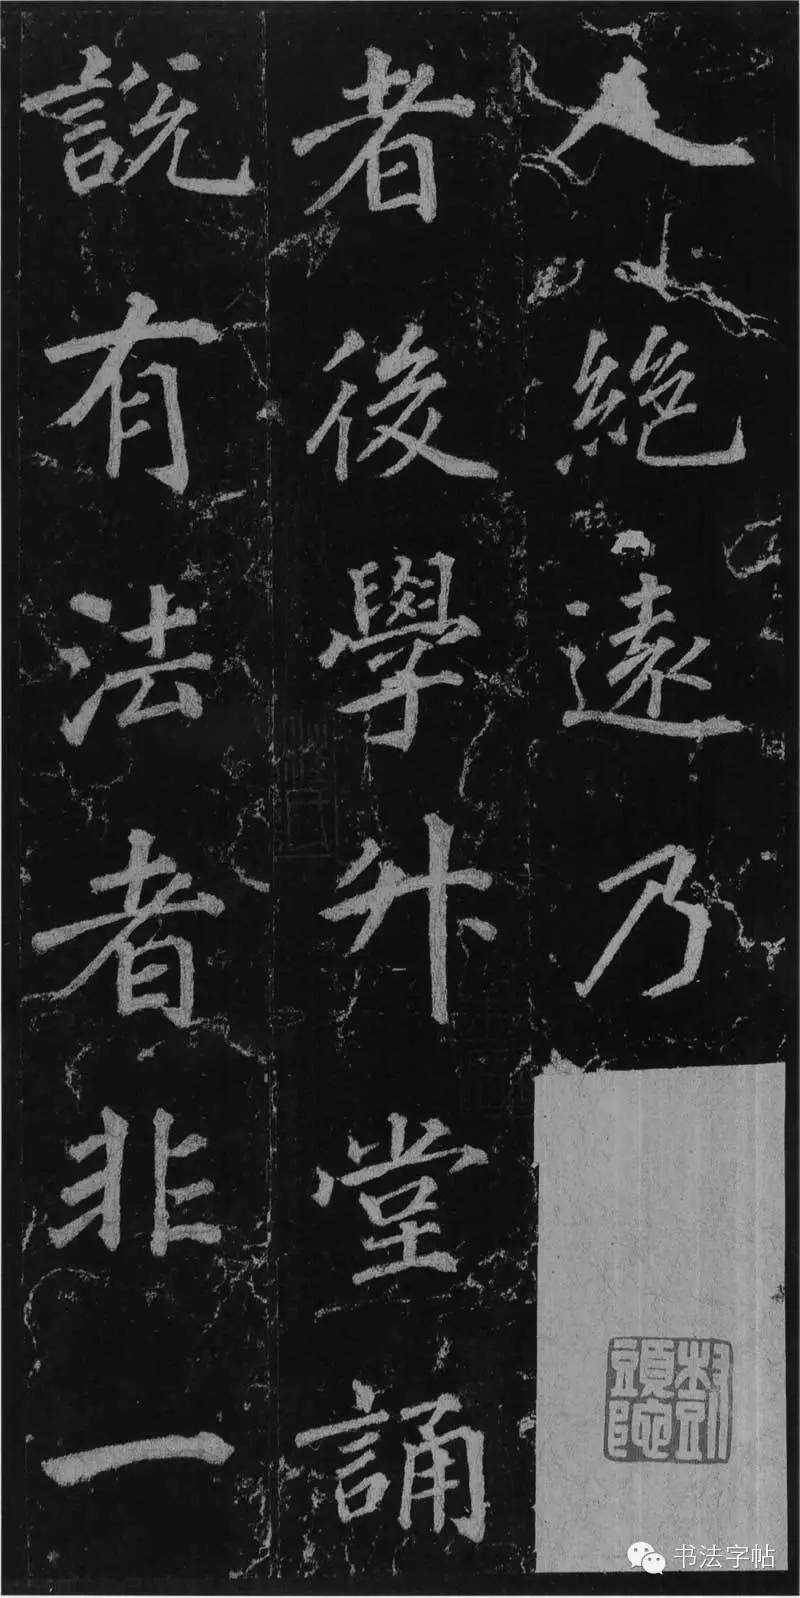 人絕遠乃
者後學升堂誦
說有法者非一
书法字帖